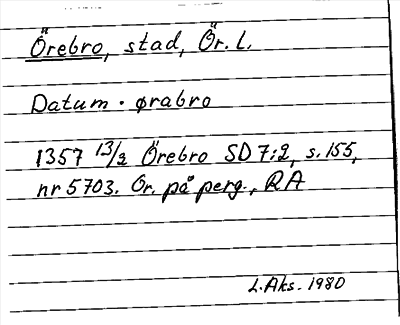 Örebro, stad, Ör. l.
Datum · ørabro
1357 13/2 Örebro SD 7:2, s. 155,
nr 5703. Or. på perg., RA
L. Aks. 1980